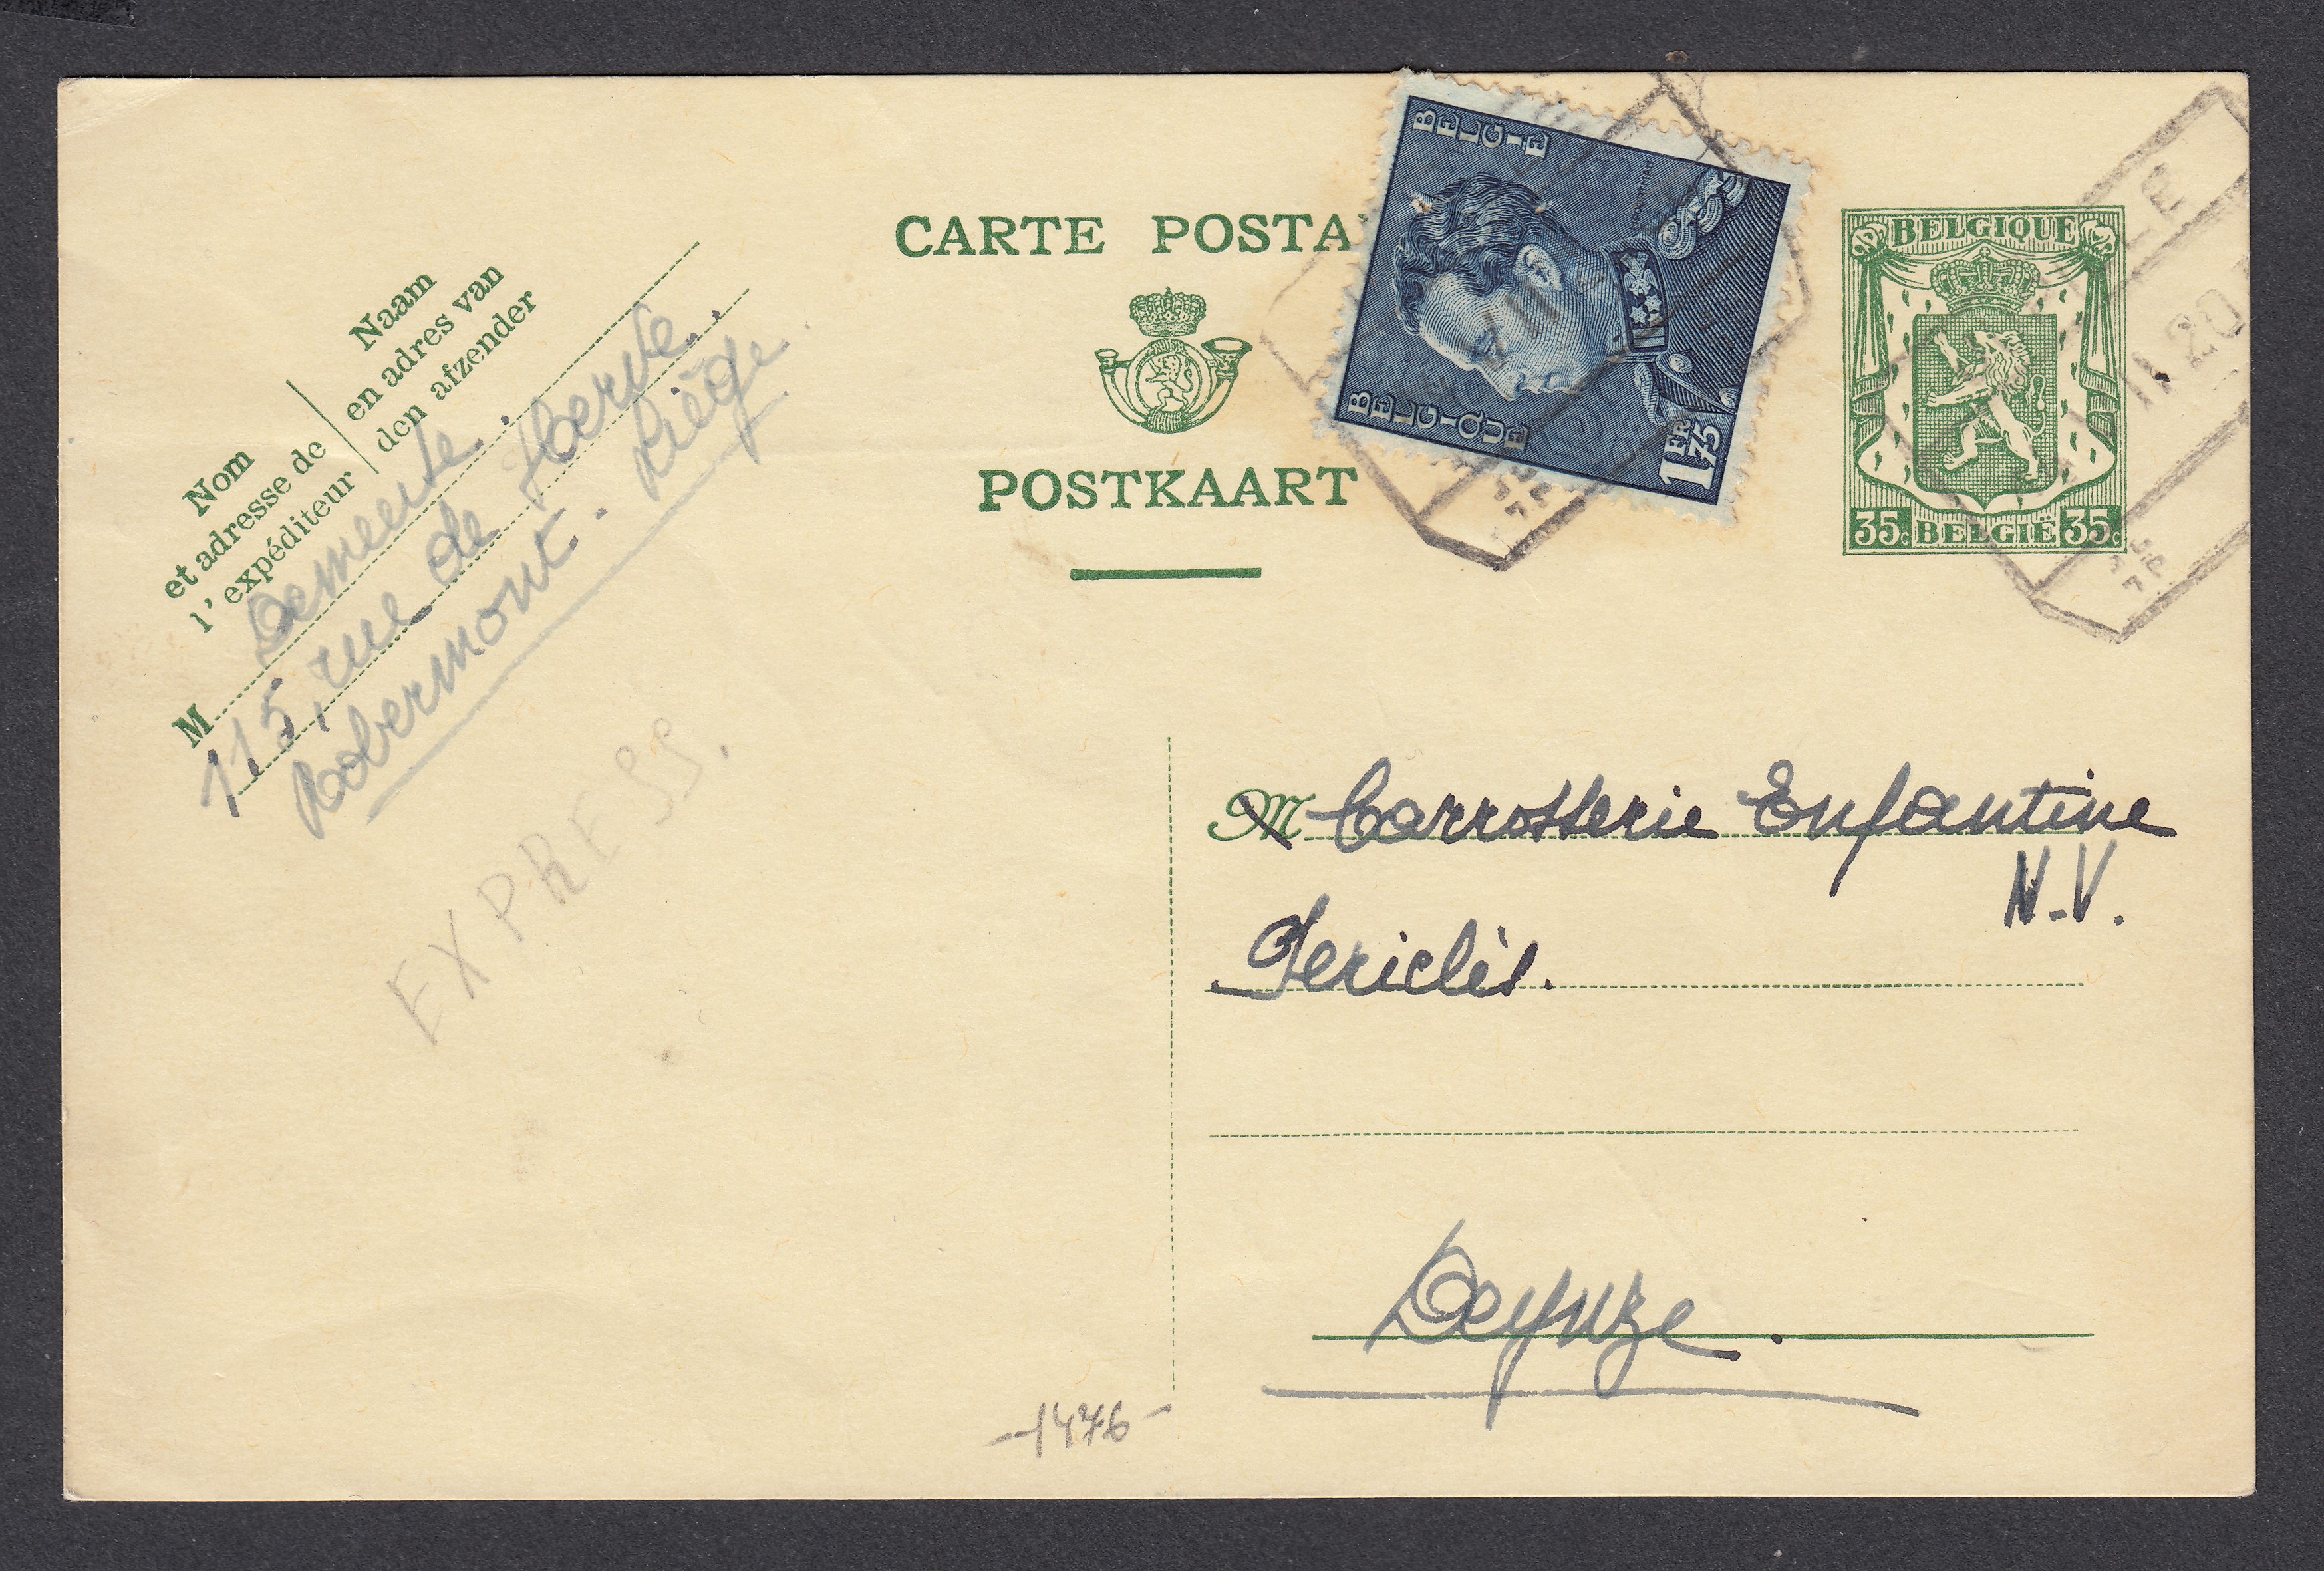 CARTE POSTA
POSTKAART
BELGIË
BELGIQUE
1FR75
BELGIQUE
35c BELGIË 35c
11 20
Nom
et adresse de
l'expéditeur
Naam
en adres van
den afzender
M Demeute.
115, rue de Herve.
Robermont. Liège.
EXPRESS.
M Carrosserie Enfantine
N.V.
Periclès.
Deynze.
-1476-